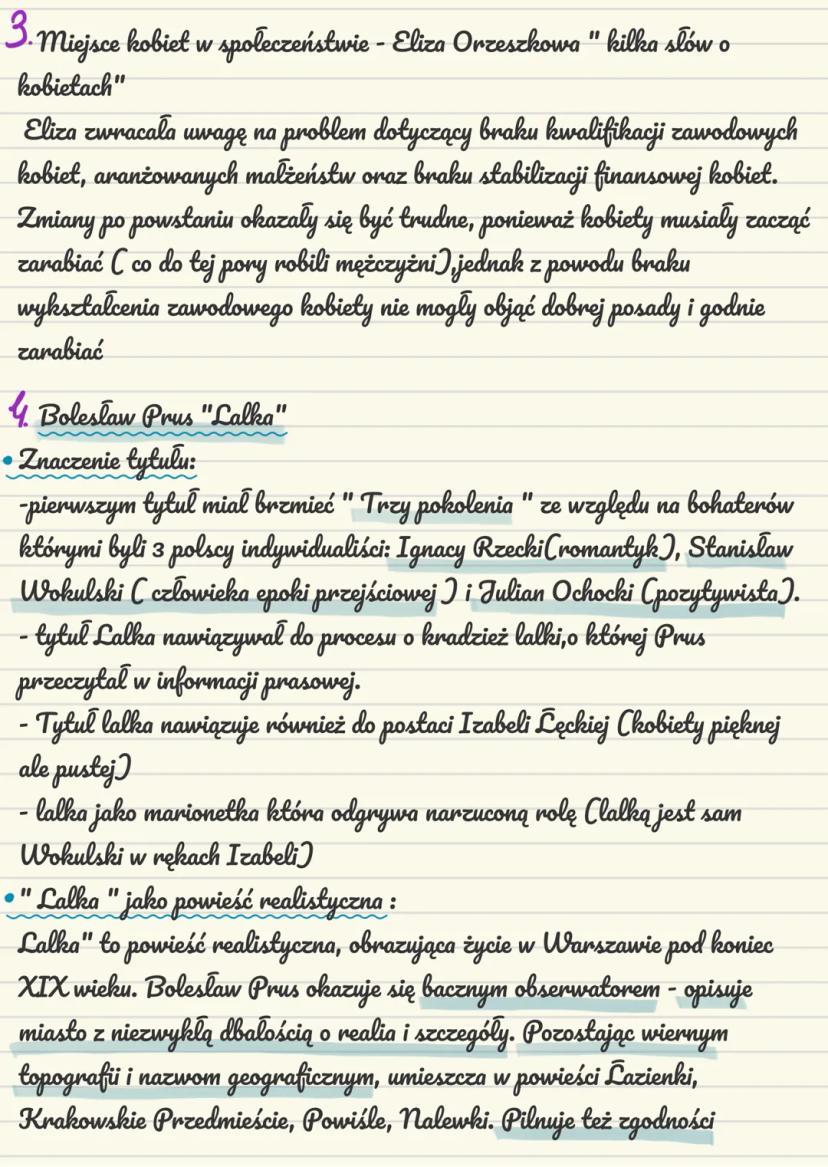 3. Miejsce kobiet w społeczeństwie - Eliza Orzeszkowa " kilka słów o
kobietach"
Eliza zwracała uwagę na problem dotyczący braku kwalifikacji zawodowych
kobiet, aranżowanych małżeństw oraz braku stabilizacji finansowej kobiet.
Zmiany po powstaniu okazały się być trudne, ponieważ kobiety musiały zacząć
zarabiać ( co do tej pory robili mężczyżni),jednak z powodu braku
wykształcenia zawodowego kobiety nie mogły objąć dobrej posady i godnie
zarabiać
4. Bolesław Prus "Lalka"
• Znaczenie tytułu:
-pierwszym tytuł miał brzmieć " Trzy pokolenia " ze względu na bohaterów
którymi byli 3 polscy indywidualiści: Ignacy Rzecki(romantyk), Stanisław
Wokulski ( człowieka epoki przejściowej ) i Julian Ochocki (pozytywista).
- tytuł Lalka nawiązywał do procesu o kradzież lalki,o której Prus
przeczytał w informacji prasowej.
- Tytuł lalka nawiązuje również do postaci Izabeli Łęckiej (kobiety pięknej
ale pustej)
- lalka jako marionetka która odgrywa narzuconą rolę (lalką jest sam
Wokulski w rękach Izabeli)
• " Lalka " jako powieść realistyczna :
Lalka" to powieść realistyczna, obrazująca życie w Warszawie pod koniec
XIX wieku. Bolesław Prus okazuje się bacznym obserwatorem - opisuje
miasto z niezwykłą dbałością o realia i szczegóły. Pozostając wiernym
topografii i nazwom geograficznym, umieszcza w powieści Łazienki,
Krakowskie Przedmieście, Powiśle, Nalewki. Pilnuje też zgodności